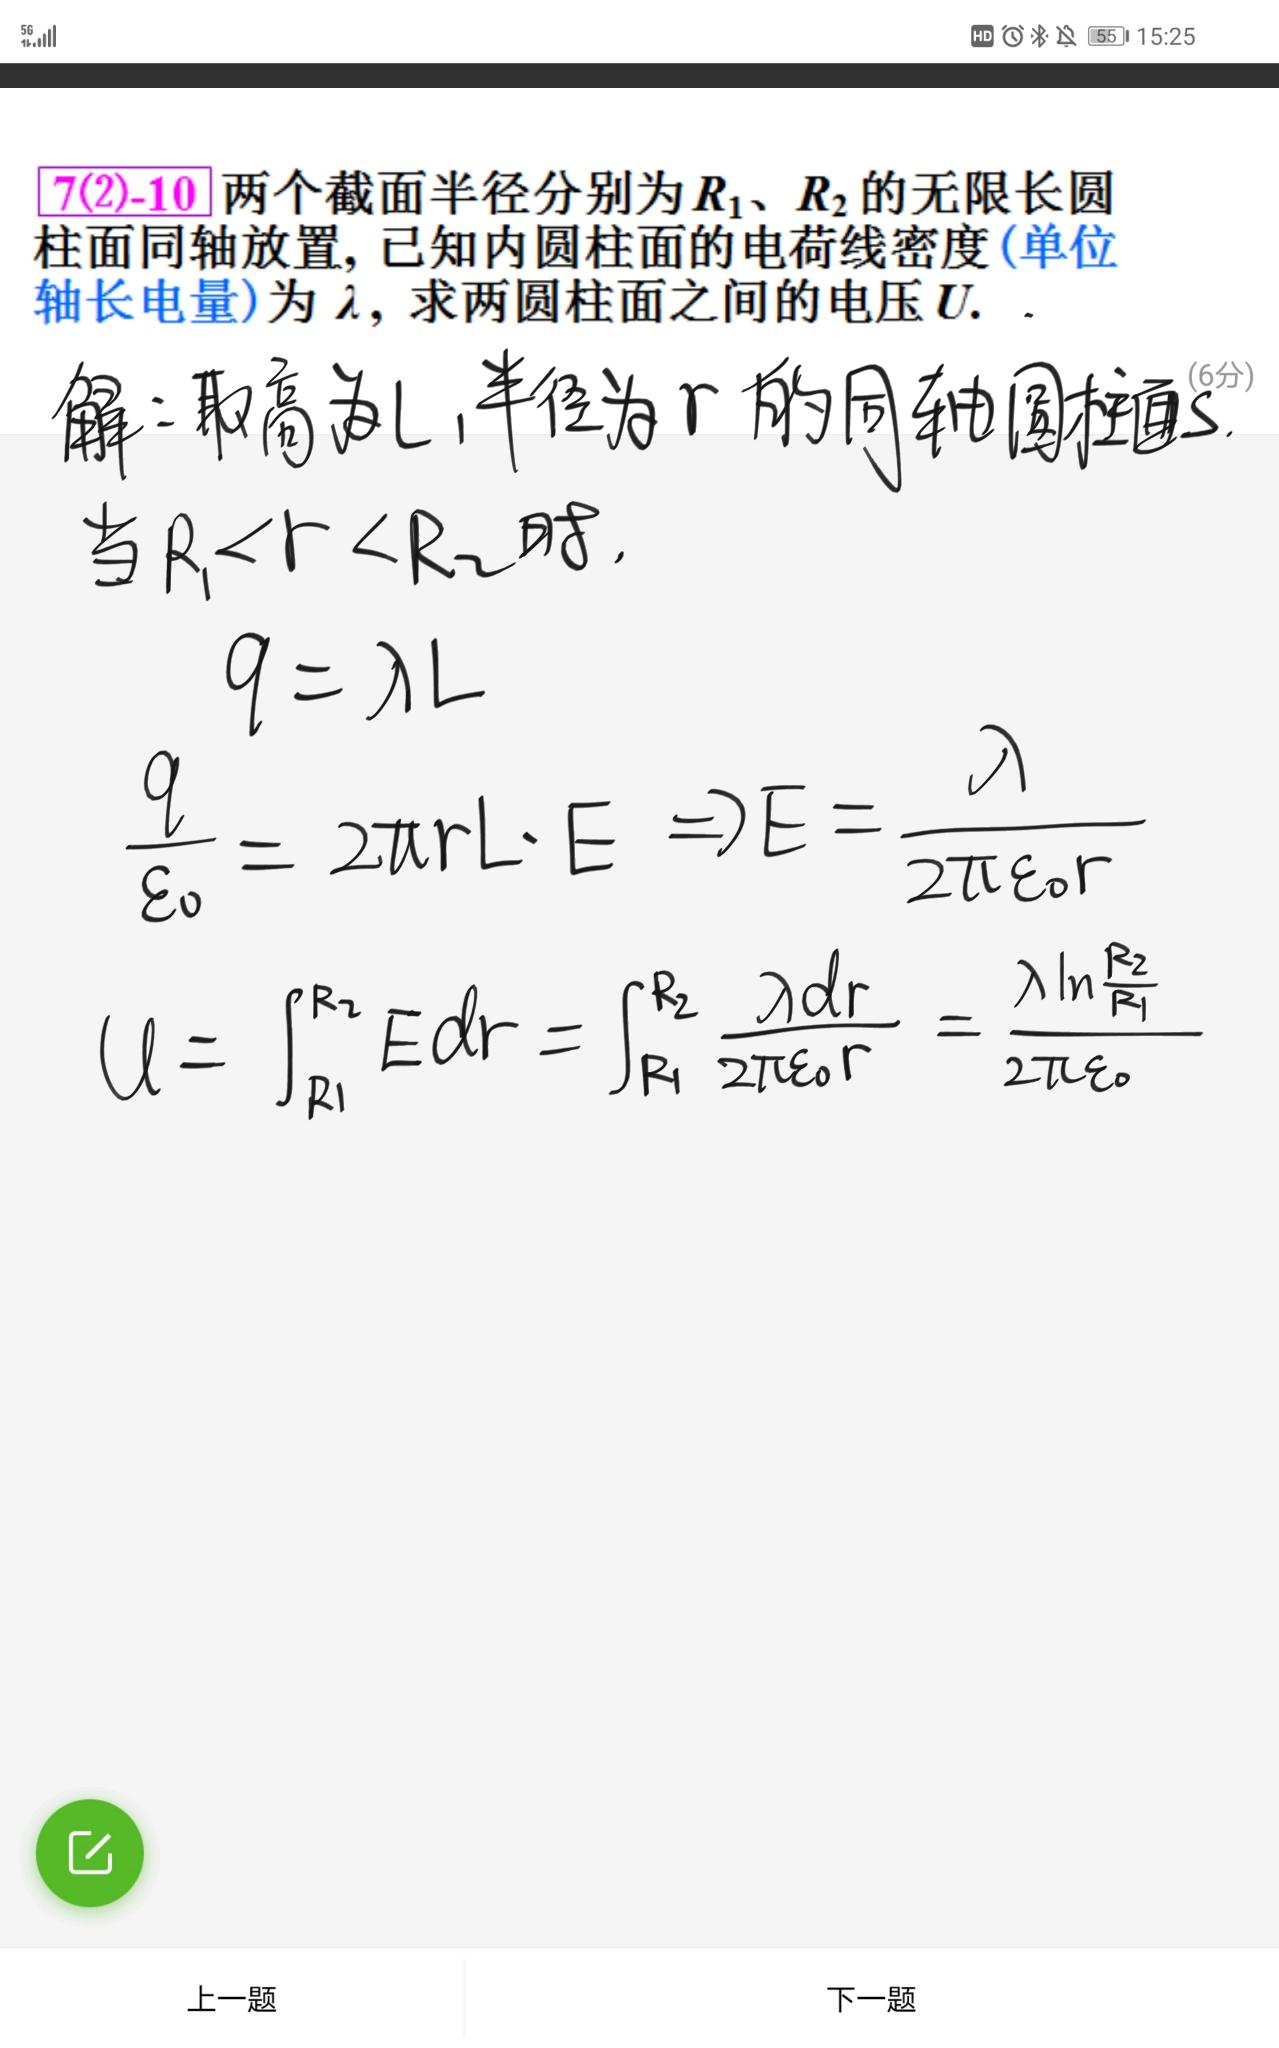 5G
HD 55 15:25
7(2)-10 两个截面半径分别为R₁、R₂的无限长圆
柱面同轴放置, 已知内圆柱面的电荷线密度(单位
轴长电量)为 λ, 求两圆柱面之间的电压 U.
(6分)
解:取高为L,半径为r的同轴圆柱面S.
当R₁<r<R₂时,
q=λL
q/ε₀=2πrL·E ⇒E=λ/2πε₀r
U=∫_{R1}^{R2} Edr=∫_{R1}^{R2} λdr/2πε₀r = λln(R2/R1)/2πε₀
上一题
下一题